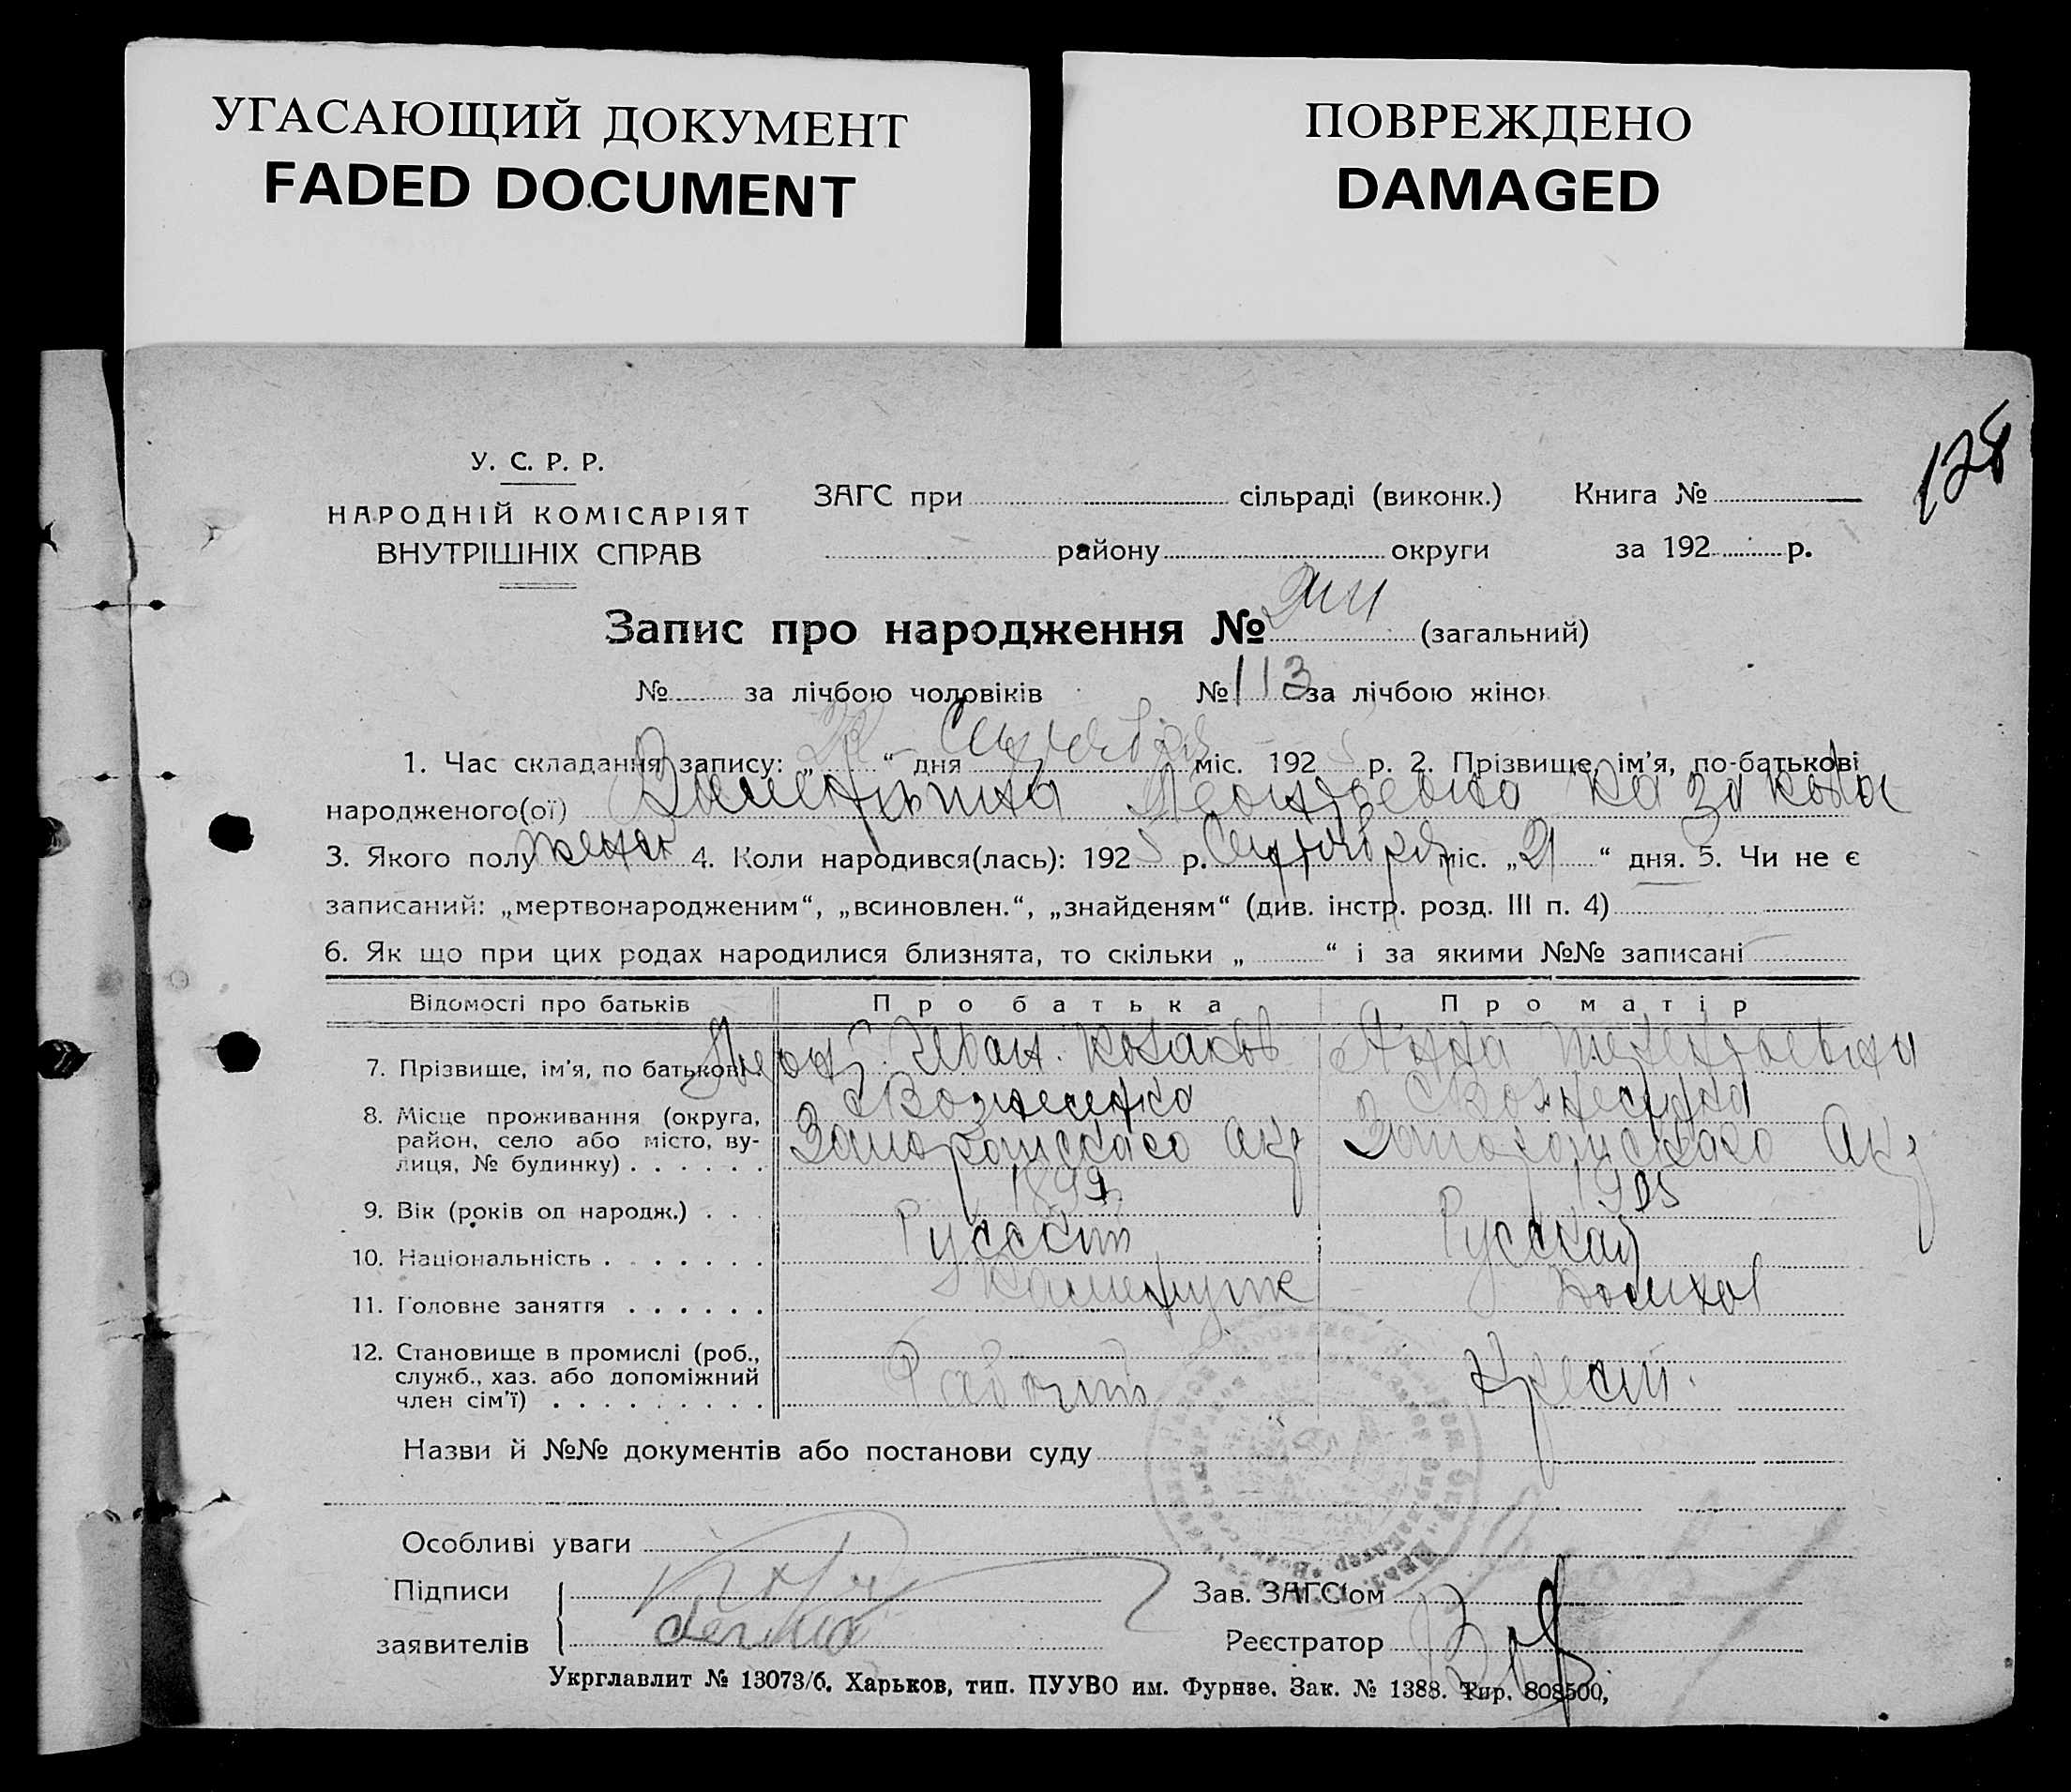 УГАСАЮЩИЙ ДОКУМЕНТ
FADED DOCUMENT
ПОВРЕЖДЕНО
DAMAGED
128
У. С. Р. Р.
НАРОДНІЙ КОМІСАРІЯТ
ВНУТРІШНІХ СПРАВ
ЗАГС при сільраді (виконк.) Книга №
району округи за 192 р.
Запис про народження № (загальний)
№ за лічбою чоловіків № 113 за лічбою жінок
1. Час складання запису: „ “ дня Сентября міс. 192 р. 2. Прізвище, ім’я, по-батькові
народженого(ої) Валентина Леонтьевна Казакова
3. Якого полу жен 4. Коли народився(лась): 1925 р. Сентября міс. „21“ дня. 5. Чи не є
записаний: „мертвонародженим“, „всиновлен.“, „знайденям“ (див. інстр. розд. III п. 4)
6. Як що при цих родах народилися близнята, то скільки „ “ і за якими №№ записані
Відомості про батьків Про батька Про матір
7. Прізвище, ім’я, по батькові Леон. Иван. Козаков Анна Терентьевна
8. Місце проживання (округа, район, село або місто, вулиця, № будинку) С Вознесенка С Вознесенка
Запорожскаго Окр Запорожскаго Окр
9. Вік (років од народж.) 1899 1905
10. Національність Русский Русская
11. Головне заняття
12. Становище в промислі (роб., служб., хаз. або допоміжний член сім’ї) Рабочий Крест.
Назви й №№ документів або постанови суду
Особливі уваги
Підписи
заявителів
Зав. ЗАГС’ом
Реєстратор
Укрглавлит № 13073/б. Харьков, тип. ПУУВО им. Фурнзе. Зак. № 1388. Тир. 808500,